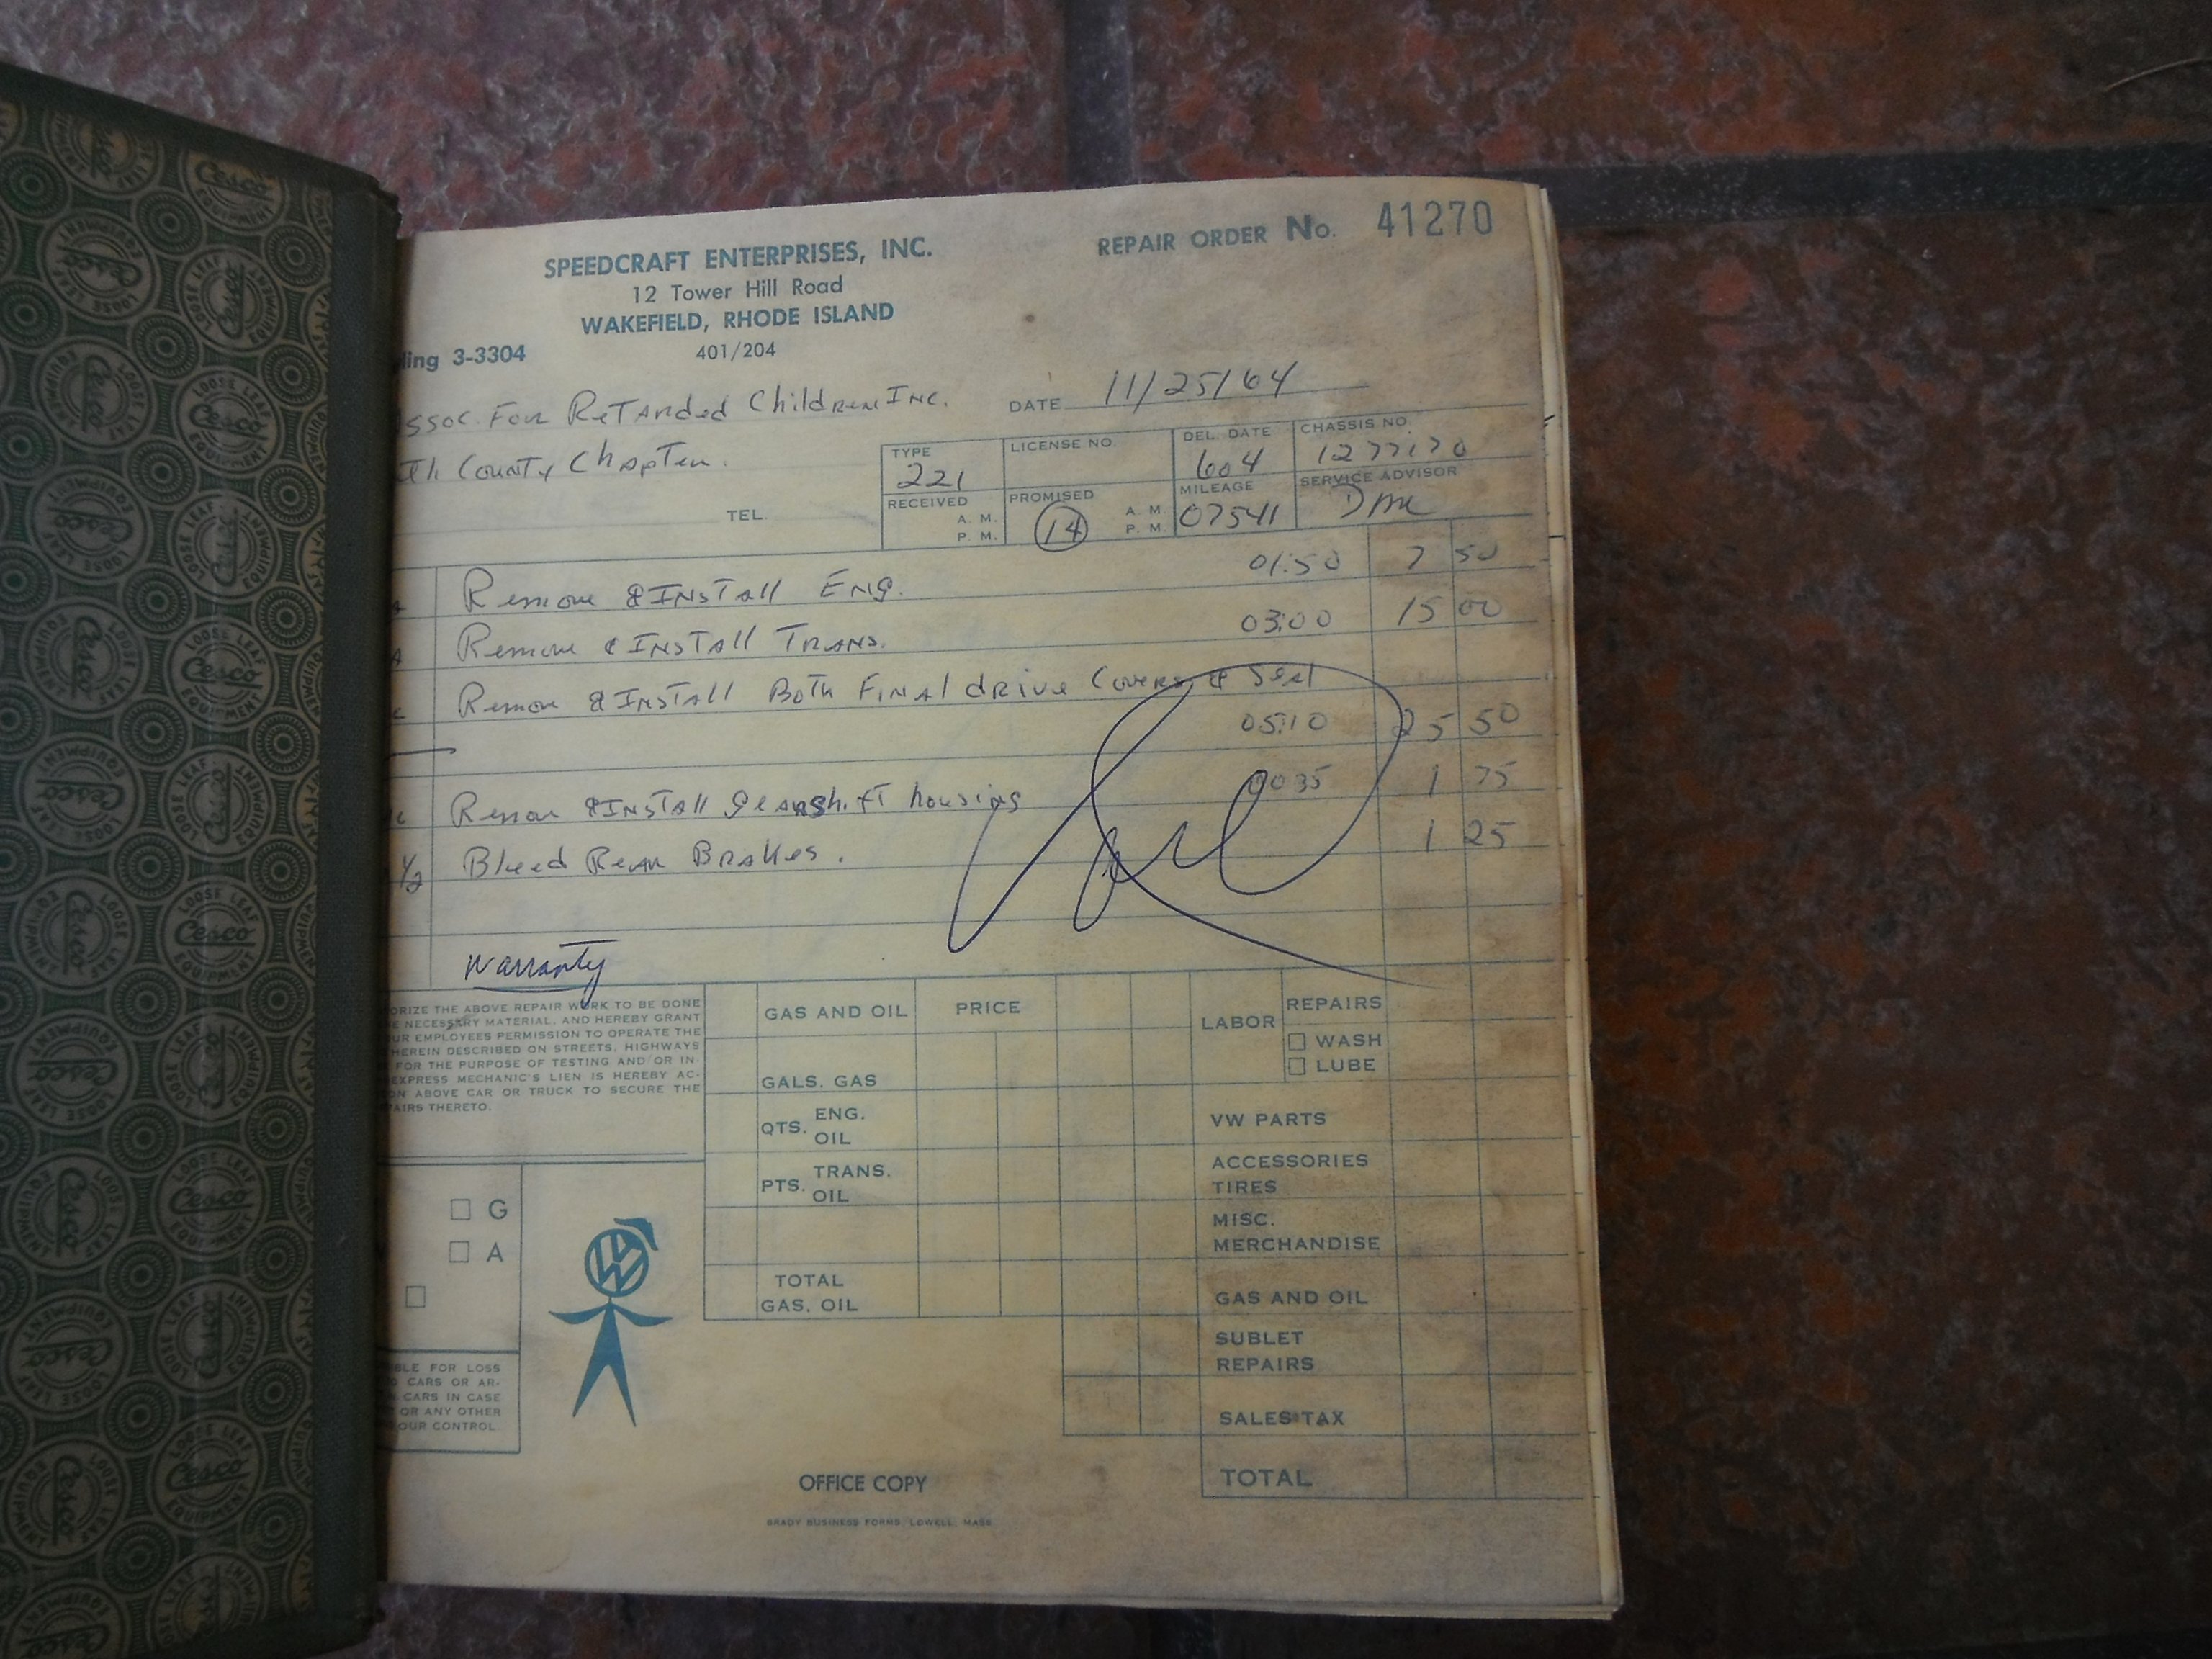 SPEEDCRAFT ENTERPRISES, INC.
12 Tower Hill Road
WAKEFIELD, RHODE ISLAND
401/204
REPAIR ORDER No. 41270
ling 3-3304
ssoc. For Retarded Children Inc.
DATE 11/25/64
th County Chapter.
TEL.
TYPE 221
LICENSE NO.
DEL. DATE 604
CHASSIS NO. 1277170
RECEIVED A. M. P. M.
PROMISED 14 A. M. P. M.
MILEAGE 07541
SERVICE ADVISOR
Remove & Install Eng. 01:50 7 50
Remove & Install Trans. 03:00 15 00
Remove & Install Both Final drive Covers & Seal
05:10 25 50
Remove & Install gearshift housing 0035 1 75
1/2 Bleed Rear Brakes. 1 25
Warranty
ORIZE THE ABOVE REPAIR WORK TO BE DONE
E NECESSARY MATERIAL, AND HEREBY GRANT
UR EMPLOYEES PERMISSION TO OPERATE THE
HEREIN DESCRIBED ON STREETS, HIGHWAYS
FOR THE PURPOSE OF TESTING AND/OR IN-
EXPRESS MECHANIC'S LIEN IS HEREBY AC-
ON ABOVE CAR OR TRUCK TO SECURE THE
AIRS THERETO.
G
A
BLE FOR LOSS
CARS OR AR-
CARS IN CASE
OR ANY OTHER
OUR CONTROL.
GAS AND OIL PRICE
GALS. GAS
QTS. ENG. OIL
PTS. TRANS. OIL
TOTAL GAS. OIL
LABOR
REPAIRS
WASH
LUBE
VW PARTS
ACCESSORIES
TIRES
MISC.
MERCHANDISE
GAS AND OIL
SUBLET
REPAIRS
SALES TAX
TOTAL
OFFICE COPY
BRADY BUSINESS FORMS, LOWELL, MASS.
Cesco
LOOSE LEAF
EQUIPMENT